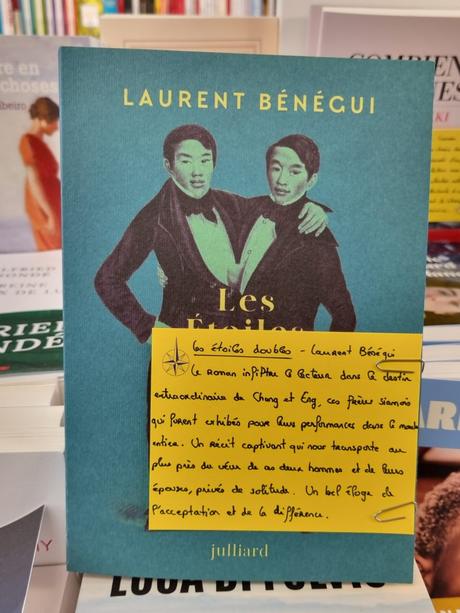 re en
choses
ibeiro
LAURENT BÉNÉGUI
COMBIEN
KI
Les
Étoiles
les étoiles doubles - Laurent Bénégui
Le roman infiltre le lecteur dans le destin
extraordinaire de Chang et Eng, ces frères siamois
qui furent exhibés pour leurs performances dans le monde
entier. Un récit captivant qui nous transporte au
plus près du vécu de ces deux hommes et de leurs
épouses, privés de solitude. Un bel éloge de
l'acceptation et de la différence.
julliard